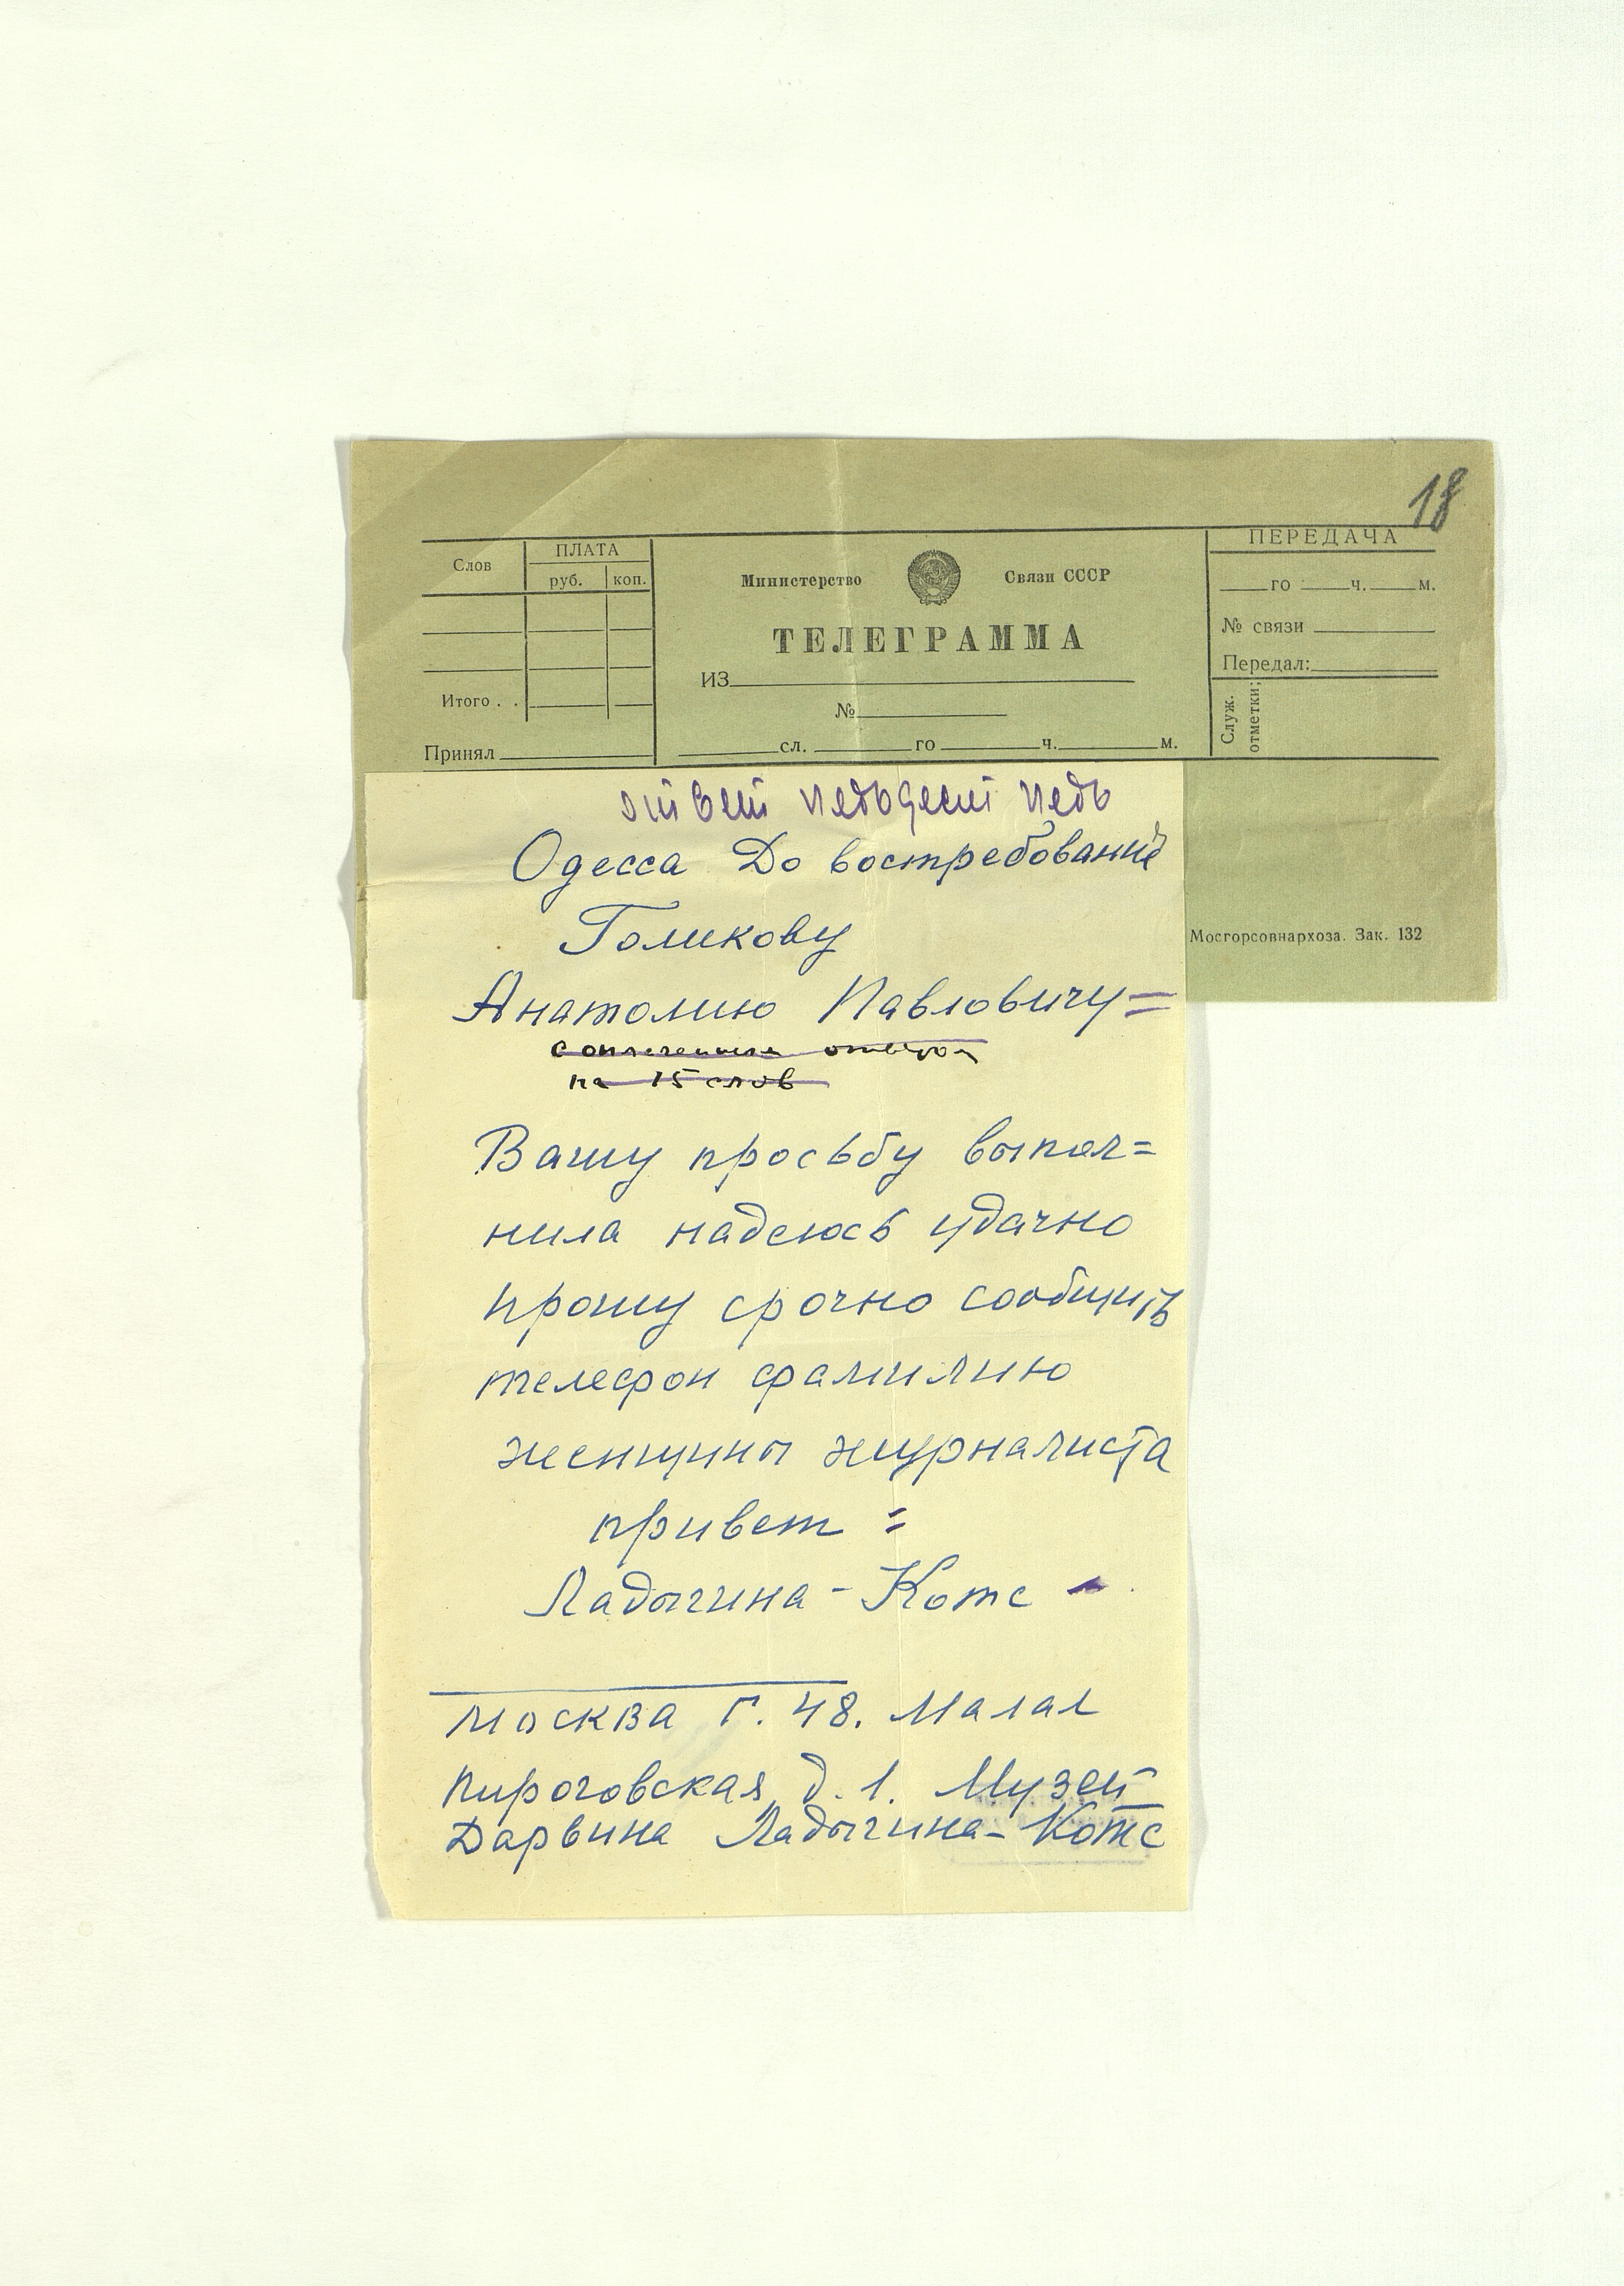 18
Слов
ПЛАТА
руб. коп.
Итого . .
Принял
Министерство Связи СССР
ТЕЛЕГРАММА
ИЗ
№
сл. го ч. м.
ПЕРЕДАЧА
го ч. м.
№ связи
Передал:
Служ. отметки:
Мосгорсовнархоза. Зак. 132
ответ
Одесса До востребования
Голикову
Анатолию Павловичу =
с оплаченным ответом
на 15 слов
Вашу просьбу выпол=
нила надеюсь удачно
прошу срочно сообщить
телефон фамилию
женщины журналиста
привет =
Ладыгина - Котс -
Москва Г. 48. Малая
Пироговская д. 1. Музей
Дарвина Ладыгина - Котс